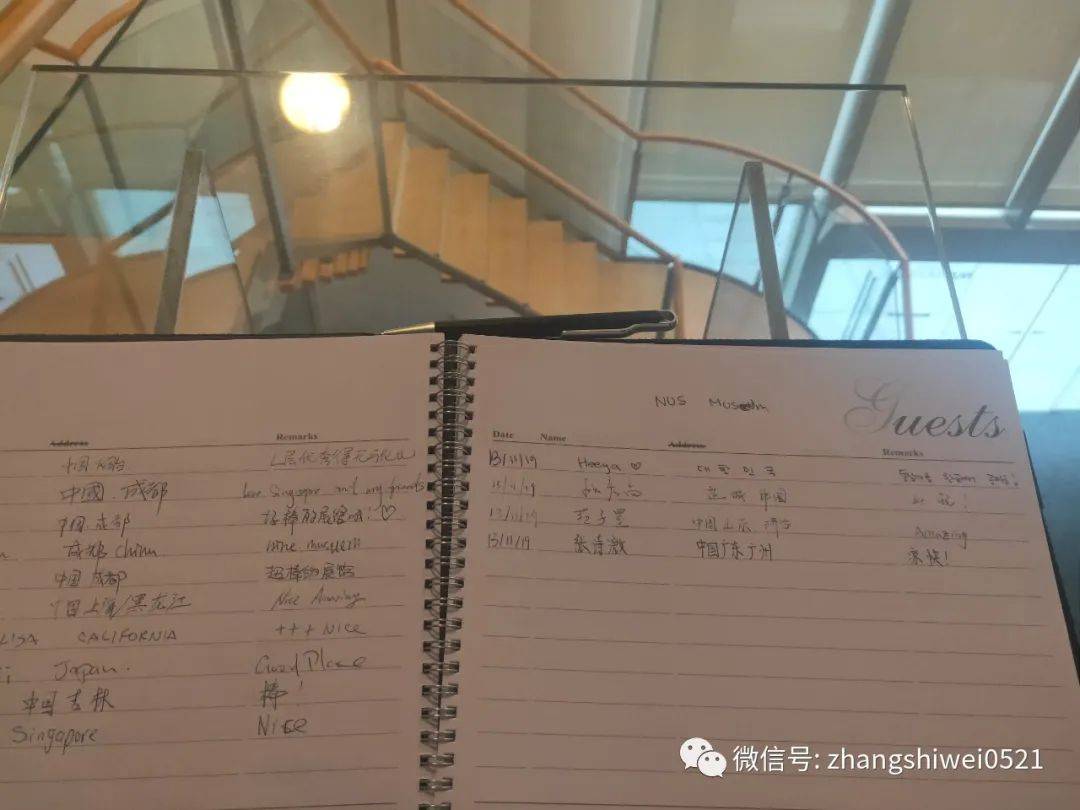 Address Remarks
中国
中國 成都 love Singapore and my friends
中国 成都 好棒的展览哦! ♡
成都 China nice museum
中国 成都 超棒的展馆
中国上海/黑龙江 Nice Amazing
LISA CALIFORNIA +++ NICE
Japan. Good Place
中国 吉林 棒!
Singapore Nice
NUS Museum
Guests
Date Name Address Remarks
13/11/19 Heeya ♡ 대한민국
13/11/19 中国
13/11/19 中国山东 济南 Amazing
13/11/19 中国广东广州
微信号: zhangshiwei0521